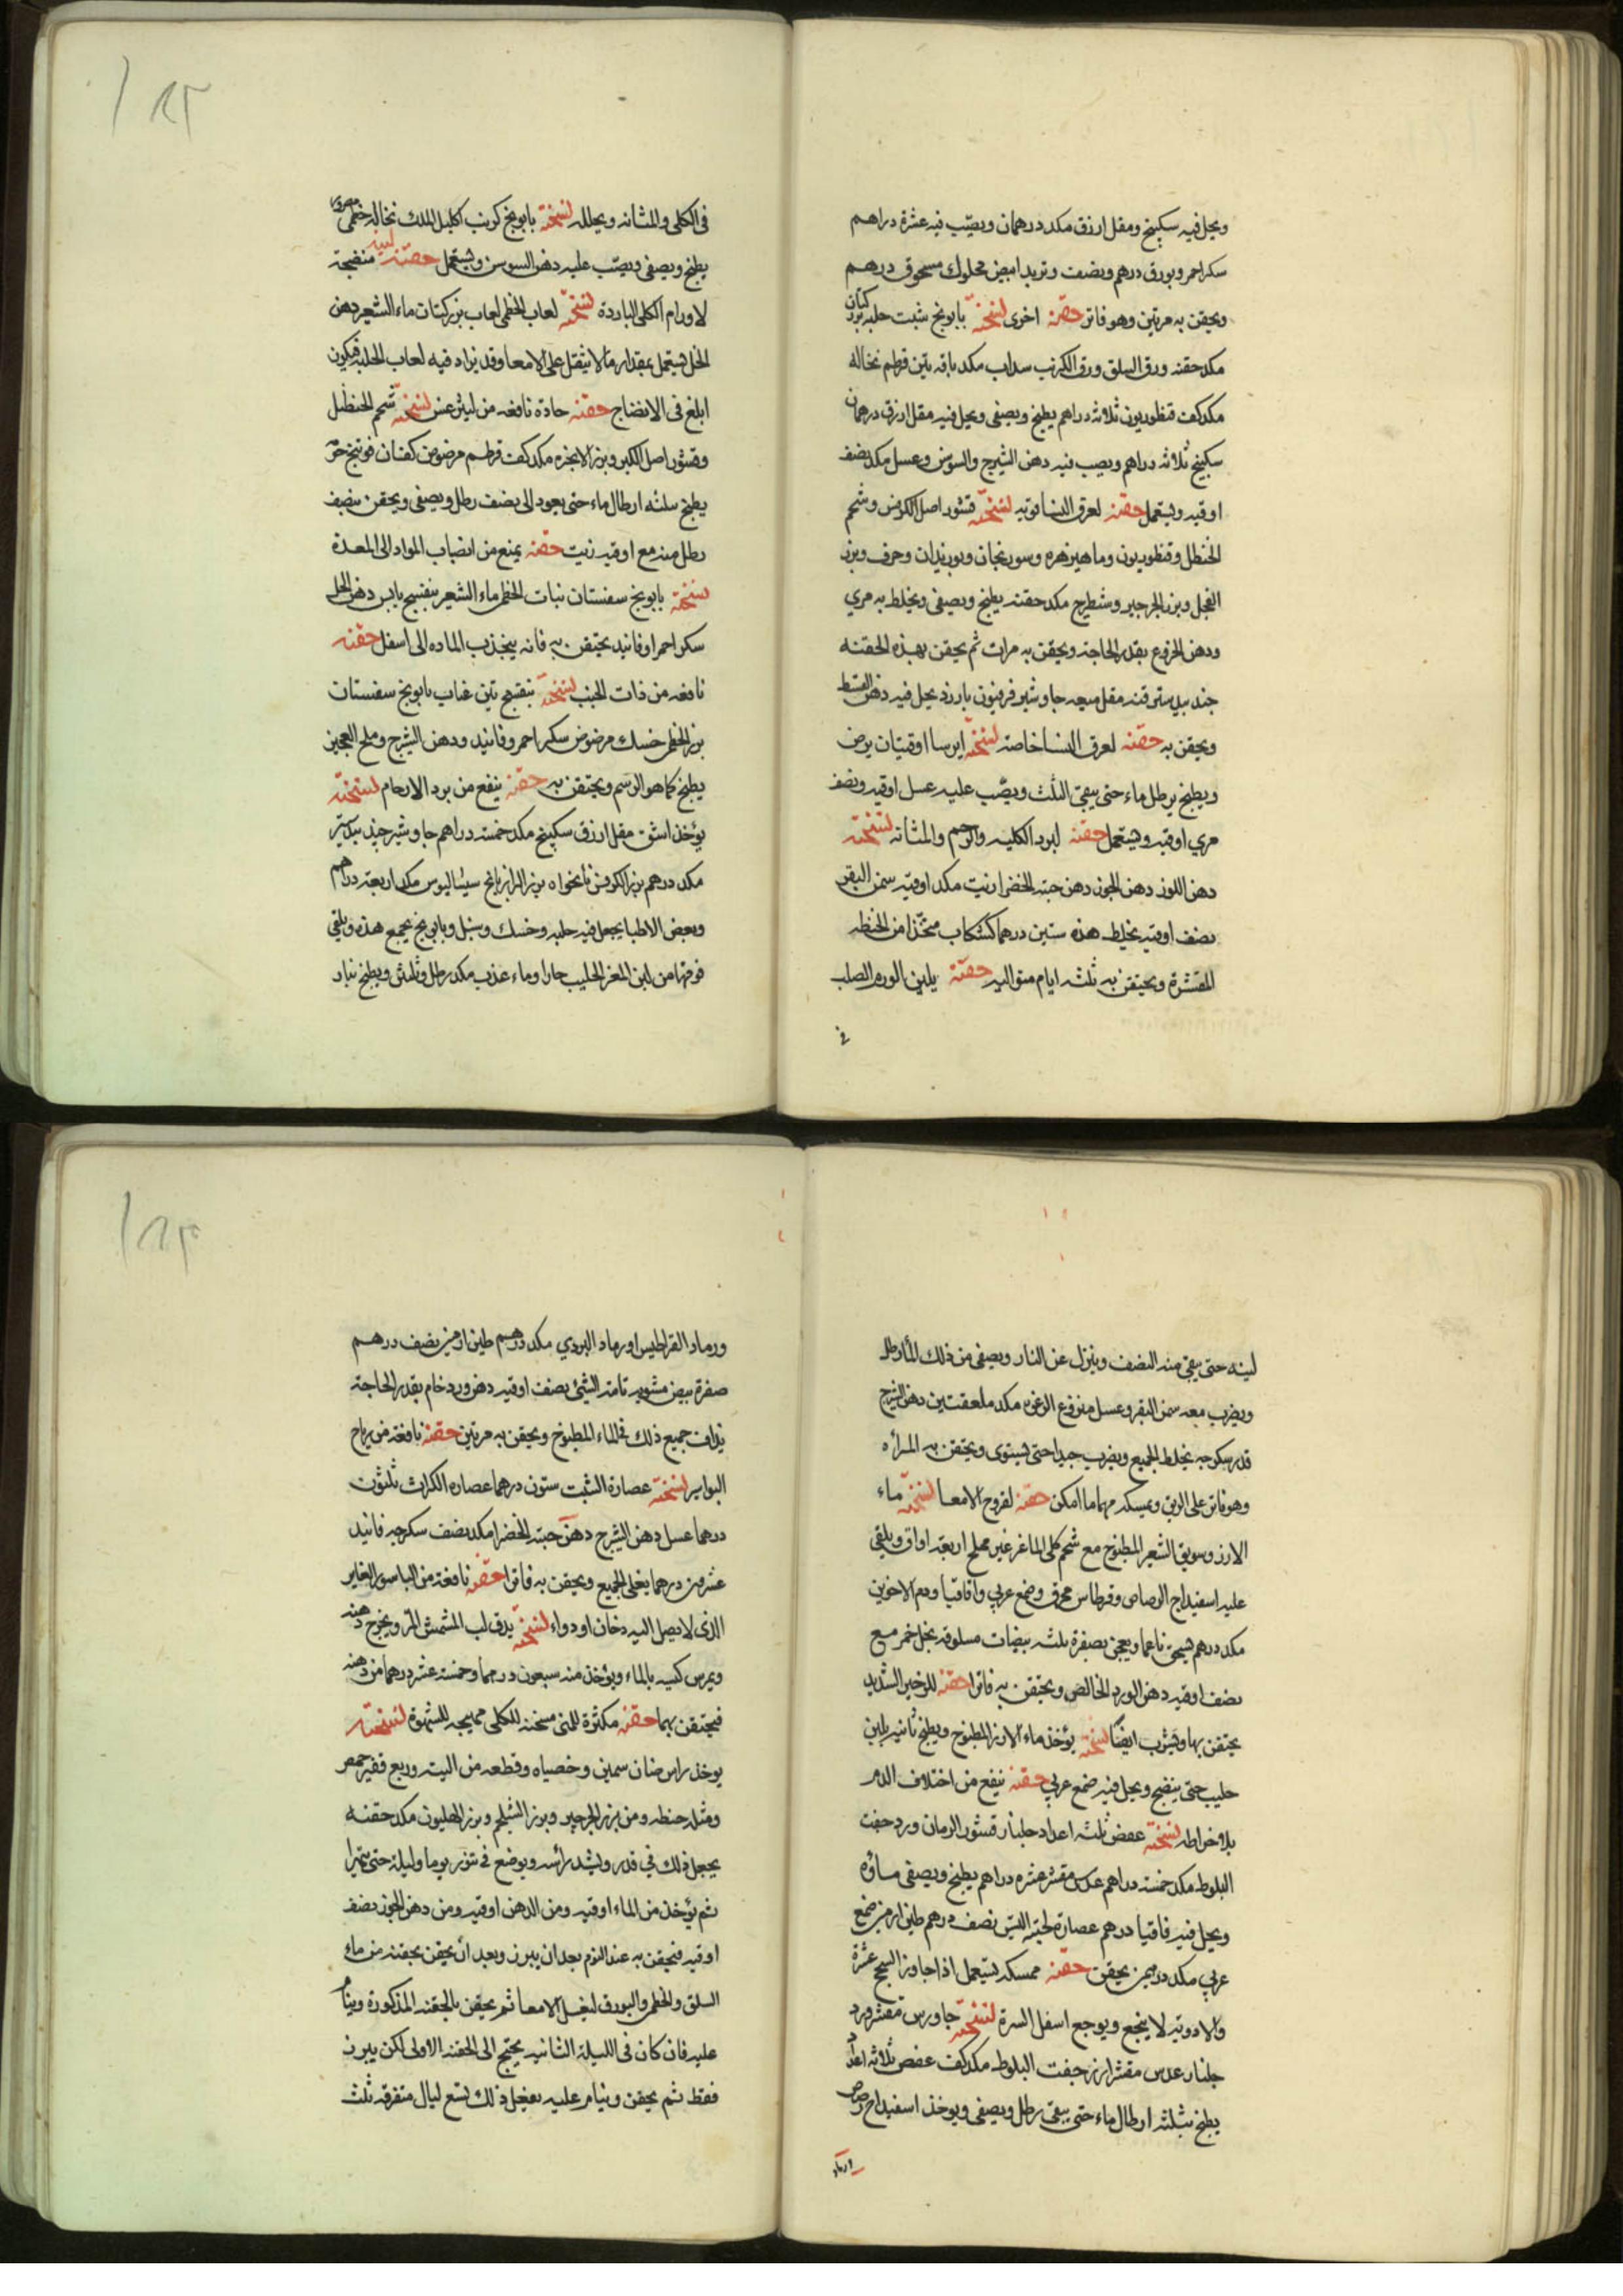 ويحل فيه سكبينج ومقل ازرق مكد درهمان ويصب فيه عشرة دراهم
سكر احمر وبورق درهم ونصف وتربد ابيض محلوك مسحوق درهم
ويحقن به مرتين وهو فاتر حقنة اخرى نسخته بابونج شبت حلبه بزر كتان
مكد حفنه ورق السلق ورق الكرنب سداب مكد باقه تين قرطم نخاله
مكد كف قنطوريون ثلاثه دراهم يطبخ ويصفى ويحل فيه مقل ازرق درهمان
سكبينج ثلاثه دراهم ويصب فيه دهن الشيرج والسوسن وعسل مكد نصف
اوقيه ويستعمل حقنه لعرق النسا قويه نسخته قشور اصل الكرفس وشحم
الحنظل وقنطوريون وماهيزهره وسورنجان وبوزيدان وحرف وبزر
الفجل وبزر الجرجير وشيطرج مكد حفنه يطبخ ويصفى ويخلط به مري
ودهن الخروع بقدر الحاجة ويحقن به مرات ثم يحقن بهذه الحقنه
جندبيدستر قنه مقل ميعه جاوشير فربيون بارزد يحل فيه دهن القسط
ويحقن به حقنه لعرق النسا خاصة نسخته ايرسا اوقيتان يرض
ويطبخ برطل ماء حتى يبقى الثلث ويصب عليه عسل اوقيه ونصف
مري اوقيه ويستعمل حقنه لبرد الكليه والرحم والمثانة نسخته
دهن اللوز دهن الجوز دهن حبة الخضرا زيت مكد اوقيه سمن البقر
نصف اوقيه يخلط هذه ستين درهما كشكاب متخذا من الحنطه
المقشرة ويحتقن به ثلثه ايام متواليه حقنة يلين الورم الصلب
في
في الكلى والمثانه ويحلله نسخته بابونج كرنب اكليل الملك نخاله خطمى
يطبخ ويصفى ويصب عليه دهن السوسن ويستعمل حقنه لينه منضجة
لاورام الكلى الباردة نسخته لعاب الخطمى لعاب بزر كتان ماء الشعير دهن
الخل يستعمل بمقدار ما لا يثقل على الامعا وقد يزاد فيه لعاب الحلبه فيكون
ابلغ في الانضاج حقنه حادة نافعه من ليثرغس نسخته شحم الحنظل
وقشور اصل الكبر وبزر الانجره مكد كف قرطم مرضوض كفان فوتنج
يطبخ بثلثه ارطال ماء حتى يعود الى نصف رطل ويصفى ويحقن بنصف
رطل منه مع اوقيه زيت حقنه يمنع من انصباب المواد الى المعدة
نسخته بابونج سفستان نبات الخطمى ماء الشعير بنفسج يابس دهن الخل
سكر احمر او فانيد يحتقن به فانه يجذب الماده الى اسفل حقنه
نافعه من ذات الجنب نسخته بنفسج تين عناب بابونج سفستان
بزر الخطمى خسك مرضوض سكر احمر وفانيد ودهن الشيرج وملح العجين
يطبخ كما هو الرسم ويحتقن به حقنه ينفع من برد الارحام نسخته
يؤخذ اشق مقل ازرق سكبينج مكد خمسه دراهم جاوشير جندبيدستر
مكد درهم بزر الكرفس نانخواه بزر الرازيانج سيساليوس مكد اربعة دراهم
وبعض الاطبا يجعل فيه حلبه وخسك وسنبل وبابونج يجمع هذه ويلقى
فوقها من لبن المعز الحليب حارا وماء عذب مكد رطل وثلثين ويطبخ بنار
لينه حتى يبقى منه النصف وينزل عن النار ويصفى من ذلك الماء رطل
ويضرب معه سمن البقر وعسل منزوع الرغوه مكد ملعقتين دهن الشيرج
قدر سكرجه يخلط الجميع ويضرب جيدا حتى يستوى ويحتقن به المرأه
وهو فاتر على الريق ويمسكه مهما امكن حقنه لقروح الامعا نسخته ماء
الارز وسويق الشعير المطبوخ مع شحم كلى الماعز غير مملح اربعة اواق ويلقى
عليه اسفيداج الرصاص وقرطاس محرق وصمغ عربي واقاقيا ودم الاخوين
مكد درهم يسحق ناعما ويعجن بصفرة ثلثه بيضات مسلوقه بخل خمر مع
نصف اوقيه دهن الورد الخالص ويحتقن به فاترا حقنه للزحير الشديد
يحتقن بها ويشرب ايضا نسخته يؤخذ ماء الارز المطبوخ ويطبخ ثانيه بلبن
حليب حتى ينضج ويحل فيه صمغ عربي حقنه ينفع من اختلاف الدم
بلا خراطه نسخته عفص ثلثه اعداد جلنار قشور الرمان ورد جفت
البلوط مكد خمسه دراهم عدس مقشر عشره دراهم يطبخ ويصفى ماؤه
ويحل فيه قاقيا درهم عصارة لحية التيس نصف درهم طين ارمني صمغ
عربي مكد درهمين يحقن حقنه ممسكه يستعمل اذا جاوز السحج عشرة
والادويه لا ينجع ويوجع اسفل السرة نسخته جاورس مقشر ورد
جلنار عدس مقشر ارز جفت البلوط مكد كف عفص ثلاثه اعداد
يطبخ بثلثه ارطال ماء حتى يبقى رطل ويصفى ويوخذ اسفيداج رصاص
ورماد
ورماد القراطيس او رماد البردي مكد درهم طين ارمني نصف درهم
صفرة بيض مشويه تامة الشئ نصف اوقيه دهن ورد خام بقدر الحاجة
يذاف جميع ذلك في الماء المطبوخ ويحقن به مرتين حقنه نافعة من رياح
البواسير نسخته عصارة الشبت ستون درهما عصاره الكراث ثلثون
درهما عسل دهن الشيرج دهن حبة الخضرا مكد نصف سكرجه فانيد
عشرون درهما يغلى الجميع ويحقن به فاترا حقنه نافعة من الباسور الغاير
الذى لا يصل اليه دخان او دواء نسخته يدق لب المشمش المر ويخرج دهنه
ويمرس كسبه بالماء ويؤخذ منه سبعون درهما وخمسة عشر درهما من دهنه
فيحتقن بهما حقنه مكثرة للمنى مسخنه للكلى مهيجه للشهوة نسخته
يوخذ راس ضان سمين وخصياه وقطعه من اليته وربع قفيز حمص
ومثله حنطه ومن بزر الجرجير وبزر الشلجم وبزر الهليون مكد حفنه
يجعل ذلك في قدر ويشد رأسه ويوضع في تنور يوما وليلة حتى يتهرا
ثم يؤخذ من الماء اوقيه ومن الدهن اوقيه ومن دهن الجوز نصف
اوقيه فيحقن به عند النوم بعد ان يبرز وبعد أن يحقن بحقنه من ماء
السلق والخطمى والبورق ليغسل الامعا ثم يحقن بالحقنه المذكورة وينام
عليه فان كان في الليلة الثانيه يحتج الى الحقنه الاولى لكن يبرز
فقط ثم يحقن وينام عليه يفعل ذلك تسع ليال متفرقه ثلث